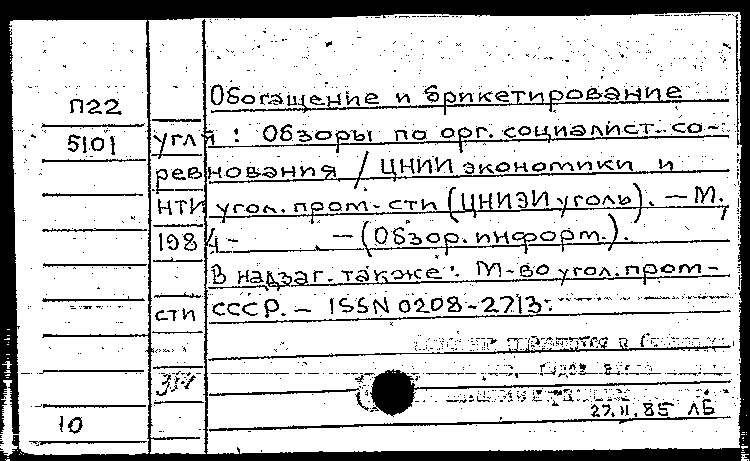 П22
5101
Обогащение и брикетирование
угля : Обзоры по орг. социалист. со-
ревнования / ЦНИИ экономики и
НТИ угол. пром-сти (ЦНИЭИуголь). — М.,
1984- — (Обзор. информ.).
В надзаг. также: М-во угол. пром-
сти СССР. — ISSN 0208-2713.
10
27.11.85 ЛБ